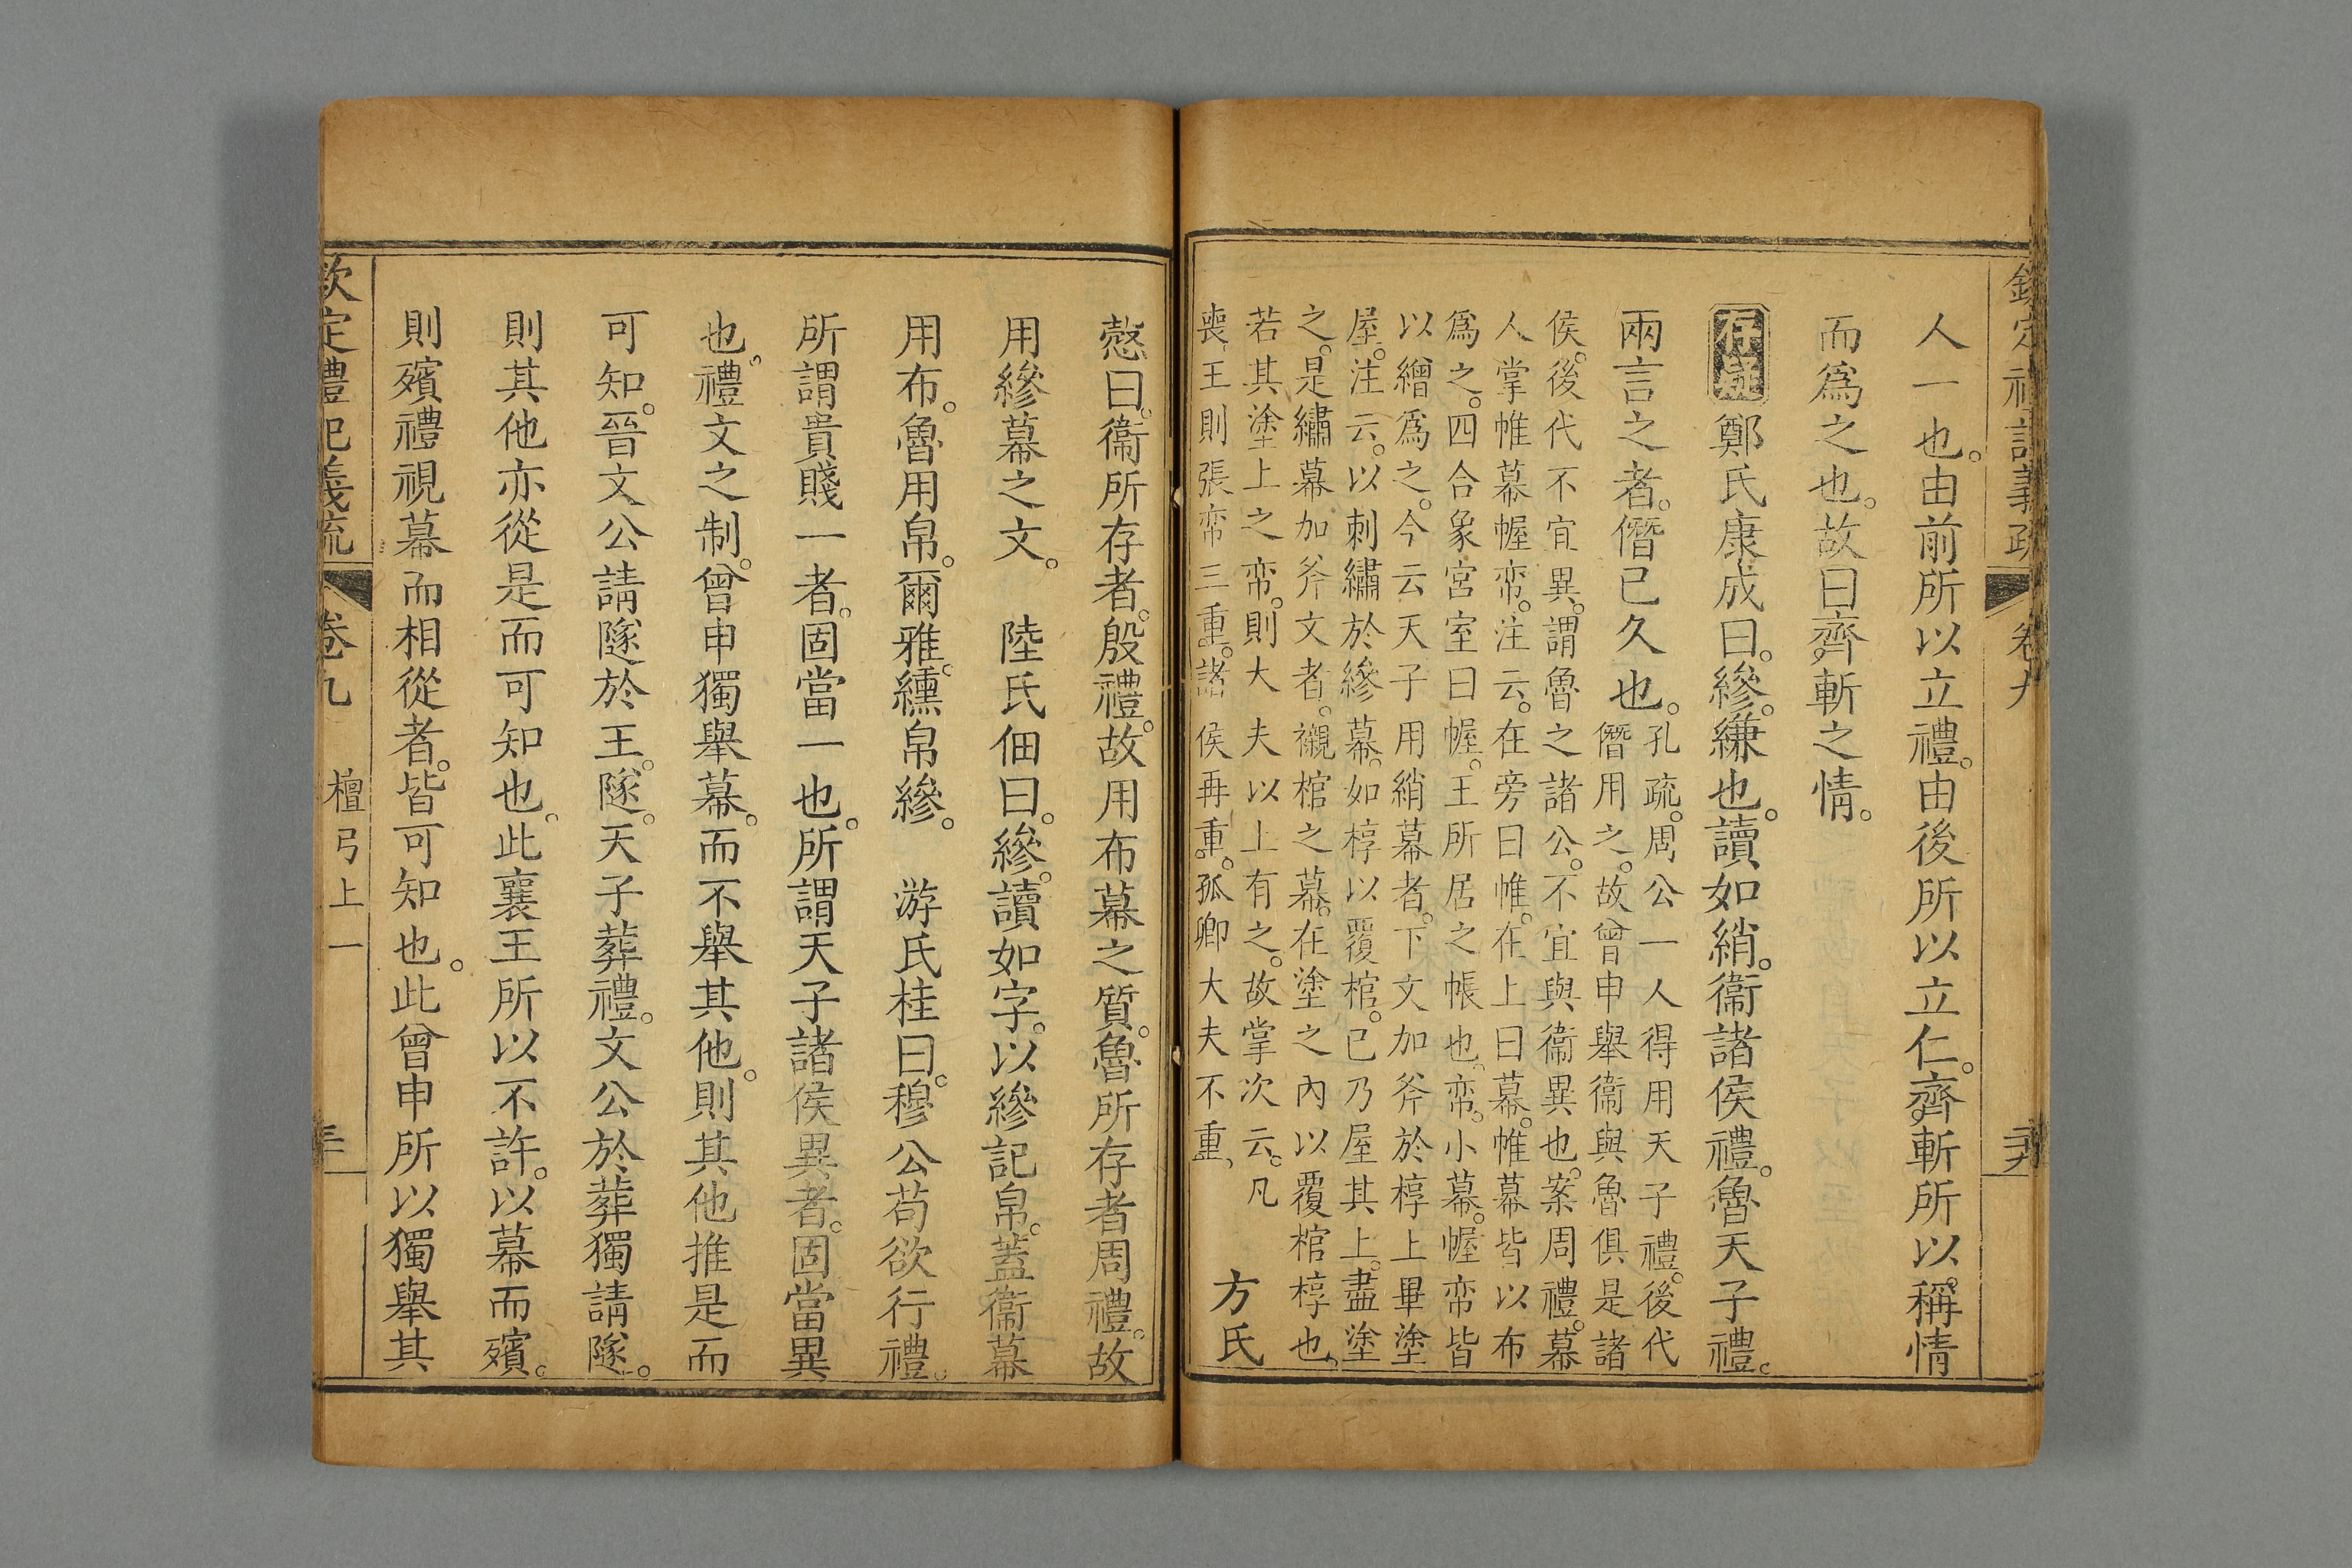 欽定禮記義疏 卷九
人一也。由前所以立禮。由後所以立仁。齊斬所以稱情
而為之也。故曰齊斬之情。
存疑 鄭氏康成曰。縿。縑也。讀如綃。衞諸侯禮。魯天子禮。
兩言之者。僭已久也。
孔疏。周公一人得用天子禮。後代
僭用之。故曾申舉衞與魯俱是諸
侯。後代不宜異。謂魯之諸公。不宜與衞異也。案周禮。幕
人掌帷幕幄帟。注云。在旁曰帷。在上曰幕。帷幕皆以布
為之。四合象宮室曰幄。王所居之帳也。帟。小幕。幄帟皆
以繒為之。今云天子用綃幕者。下文加斧於椁上畢塗
屋。注云。以刺繡於縿幕。如椁以覆棺。已乃屋其上。盡塗
之。是繡幕加斧文者。襯棺之幕。在塗之內以覆棺椁也。
若其塗上之帟。則大夫以上有之。故掌次云。凡
喪。王則張帟三重。諸侯再重。孤卿大夫不重。
方氏
慤曰。衞所存者。殷禮。故用布幕之質。魯所存者周禮。故
用縿幕之文。 陸氏佃曰。縿。讀如字。以縿記帛。蓋衞幕
用布。魯用帛。爾雅。纁帛縿。 游氏桂曰。穆公苟欲行禮。
所謂貴賤一者。固當一也。所謂天子諸侯異者。固當異
也。禮文之制。曾申獨舉幕。而不舉其他。則其他推是而
可知。晉文公請隧於王。隧。天子葬禮。文公於葬獨請隧。
則其他亦從是而可知也。此襄王所以不許。以幕而殯。
則殯禮視幕而相從者。皆可知也。此曾申所以獨舉其
欽定禮記義疏 卷九 檀弓上一